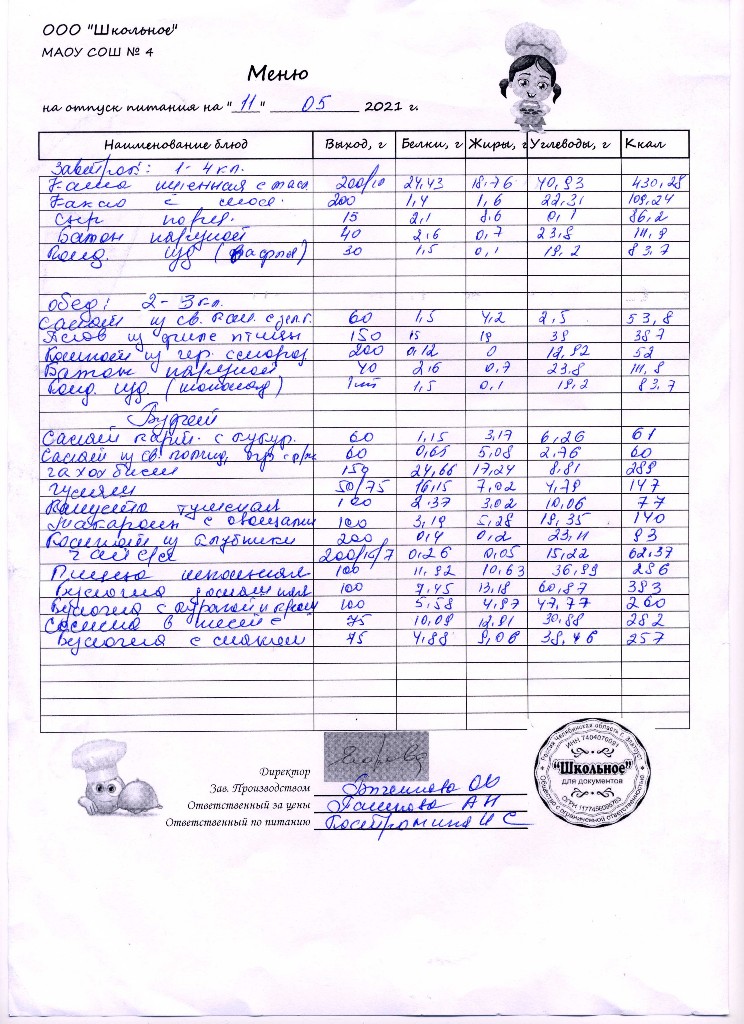 ООО "Школьное"
МАОУ СОШ № 4
Меню
на отпуск питания на " 11 " 05 2021 г.
Наименование блюд Выход, г Белки, г Жиры, г Углеводы, г Ккал
Завтрак: 1-4 кл.
Каша пшенная с масл 200/10 24,43 18,76 40,93 430,28
Какао с молоч. 200 1,4 1,6 22,31 109,24
Сыр порц. 15 2,1 8,6 0,1 86,2
Батон нарезной 40 2,6 0,7 23,8 111,9
Конд. изд (вафля) 30 1,5 0,1 19,2 83,7
обед: 2-3 кл.
Салат из св. кап. с зел. 60 1,5 4,2 2,5 53,8
Плов из филе птицы 150 15 19 39 387
Компот из чер. смород 200 0,12 0 12,92 52
Батон нарезной 40 2,6 0,7 23.8 111,8
Конд. изд. (шоколад) 1шт 1,5 0,1 19,2 83,7
Буфет
Салат карт. с кукур. 60 1,15 3,17 6,26 61
Салат из св. помид, огур 60 0,65 5,08 2,76 60
чахохбили 150 24,66 17,24 8,81 289
гуляш 50/75 16,15 7,02 4,79 147
Капуста тушеная 100 2,37 3,02 10,06 77
Макароны с овощами 100 3,19 5,28 19,35 140
Компот из клубники 200 0,4 0,2 23,11 93
чай с/л 200/15/7 0,26 0,05 15,22 62,37
Пицца школьная 100 11,92 10,63 36,99 286
Булочка домашняя 100 7,45 13,18 60,87 393
Булочка с курагой и кр 100 5,58 4,97 47,77 260
Сосиска в тесте 75 10,09 12,91 30,88 282
Булочка с маком 75 4,88 9,06 38,46 257
Директор
Зав. Производством ОЮ
Ответственный за цены АН
Ответственный по питанию Костромина И С
Россия Челябинская область г. Златоуст
ИНН 7404070691
"Школьное"
для документов
Общество с ограниченной ответственностью